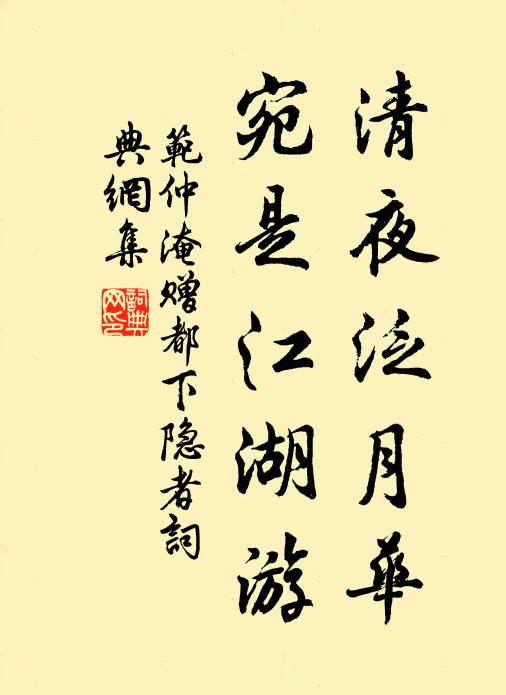 清夜泛月華
宛是江湖游
範仲淹赠都下隐者詞
典網集
詞典網印